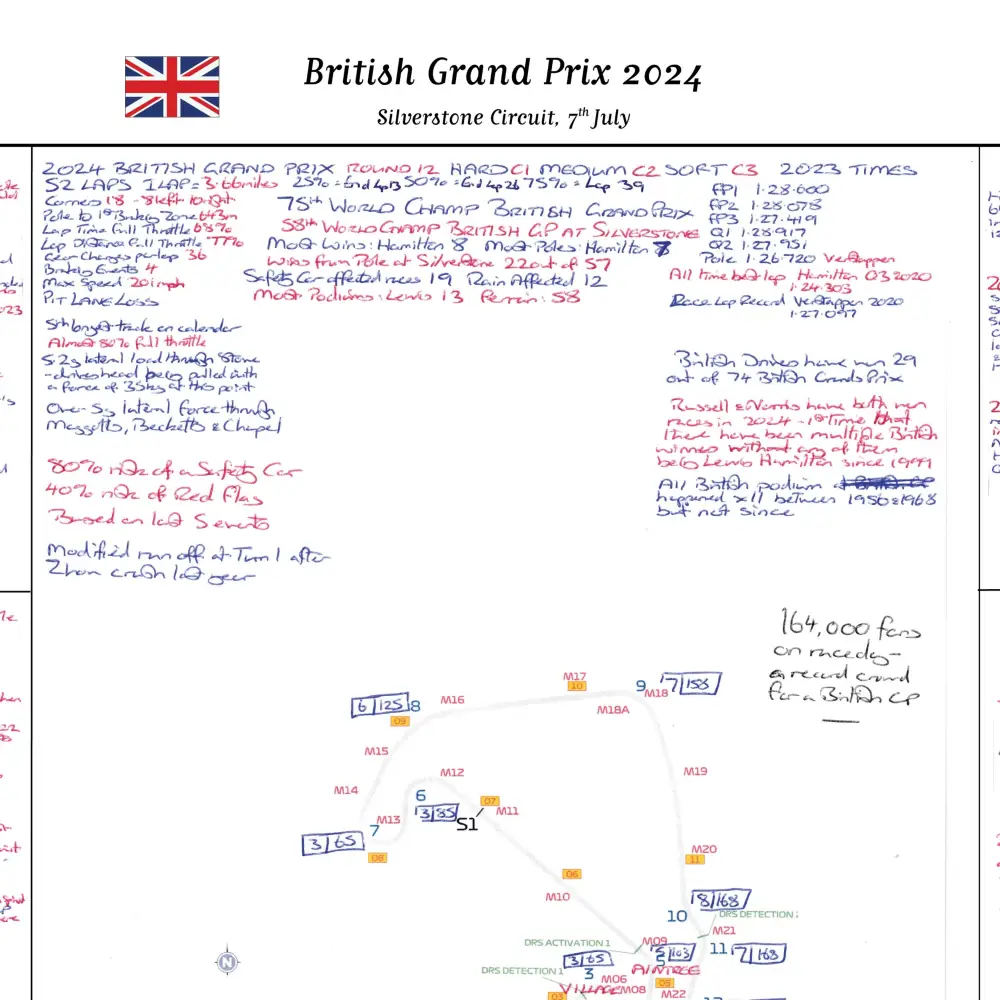 British Grand Prix 2024
Silverstone Circuit, 7th July
2024 BRITISH GRAND PRIX ROUND 12 HARD C1 MEDIUM C2 SOFT C3 2023 TIMES
52 LAPS 1 LAP = 3.66 miles 25% = End Lap 13 50% = End Lap 26 75% = Lap 39
Corners 18 - 8 left 10 right
Pole to 1st Braking Zone
Lap Time Full Throttle 68%
Lap Distance Full Throttle 77%
Gear Changes per lap 36
Braking Events 4
Max Speed 201mph
PIT LANE LOSS
75th WORLD CHAMP BRITISH GRAND PRIX
58th WORLD CHAMP BRITISH GP AT SILVERSTONE
Most Wins: Hamilton 8 Most Poles: Hamilton 7
Wins from Pole at Silverstone 22 out of 57
Safety Car affected races 19 Rain Affected 12
Most Podiums: Lewis 13 Ferrari: 58
FP1 1.28.600
FP2 1.28.078
FP3 1.27.419
Q1 1.28.917
Q2 1.27.951
Pole 1.26.720 Verstappen
All time best lap Hamilton Q3 2020
1.24.303
Race Lap Record Verstappen 2020
1.27.097
5th longest track on calendar
Almost 80% full throttle
5.2g lateral load through Stowe
- drivers head being pulled with
a force of 35kg at this point
Over 5g lateral force through
Maggotts, Becketts & Chapel
80% risk of a Safety Car
40% risk of Red Flag
Based on last 5 events
Modified run off at Turn 1 after
Zhou crash last year
British Drivers have won 29
out of 74 British Grands Prix
Russell & Norris have both won
races in 2024 - 1st Time that
there have been multiple British
winners without any of them
being Lewis Hamilton since 1999
All British podium
happened x11 between 1950 & 1968
but not since
164,000 fans
on raceday -
a record crowd
for a British GP
M17
10
9 7/158
M18
6/125 8
M16
09
M18A
M15
M12
M19
M14
6
07
3/85
M11
S1
M13
7
3/65
08
M20
11
06
M10
8/168
10
DRS DETECTION 2
M21
DRS ACTIVATION 1
M09
5/103
11 7/168
3/65
DRS DETECTION 1
3
M06
AINTREE
VILLAGE
M08
05
M22
03
N